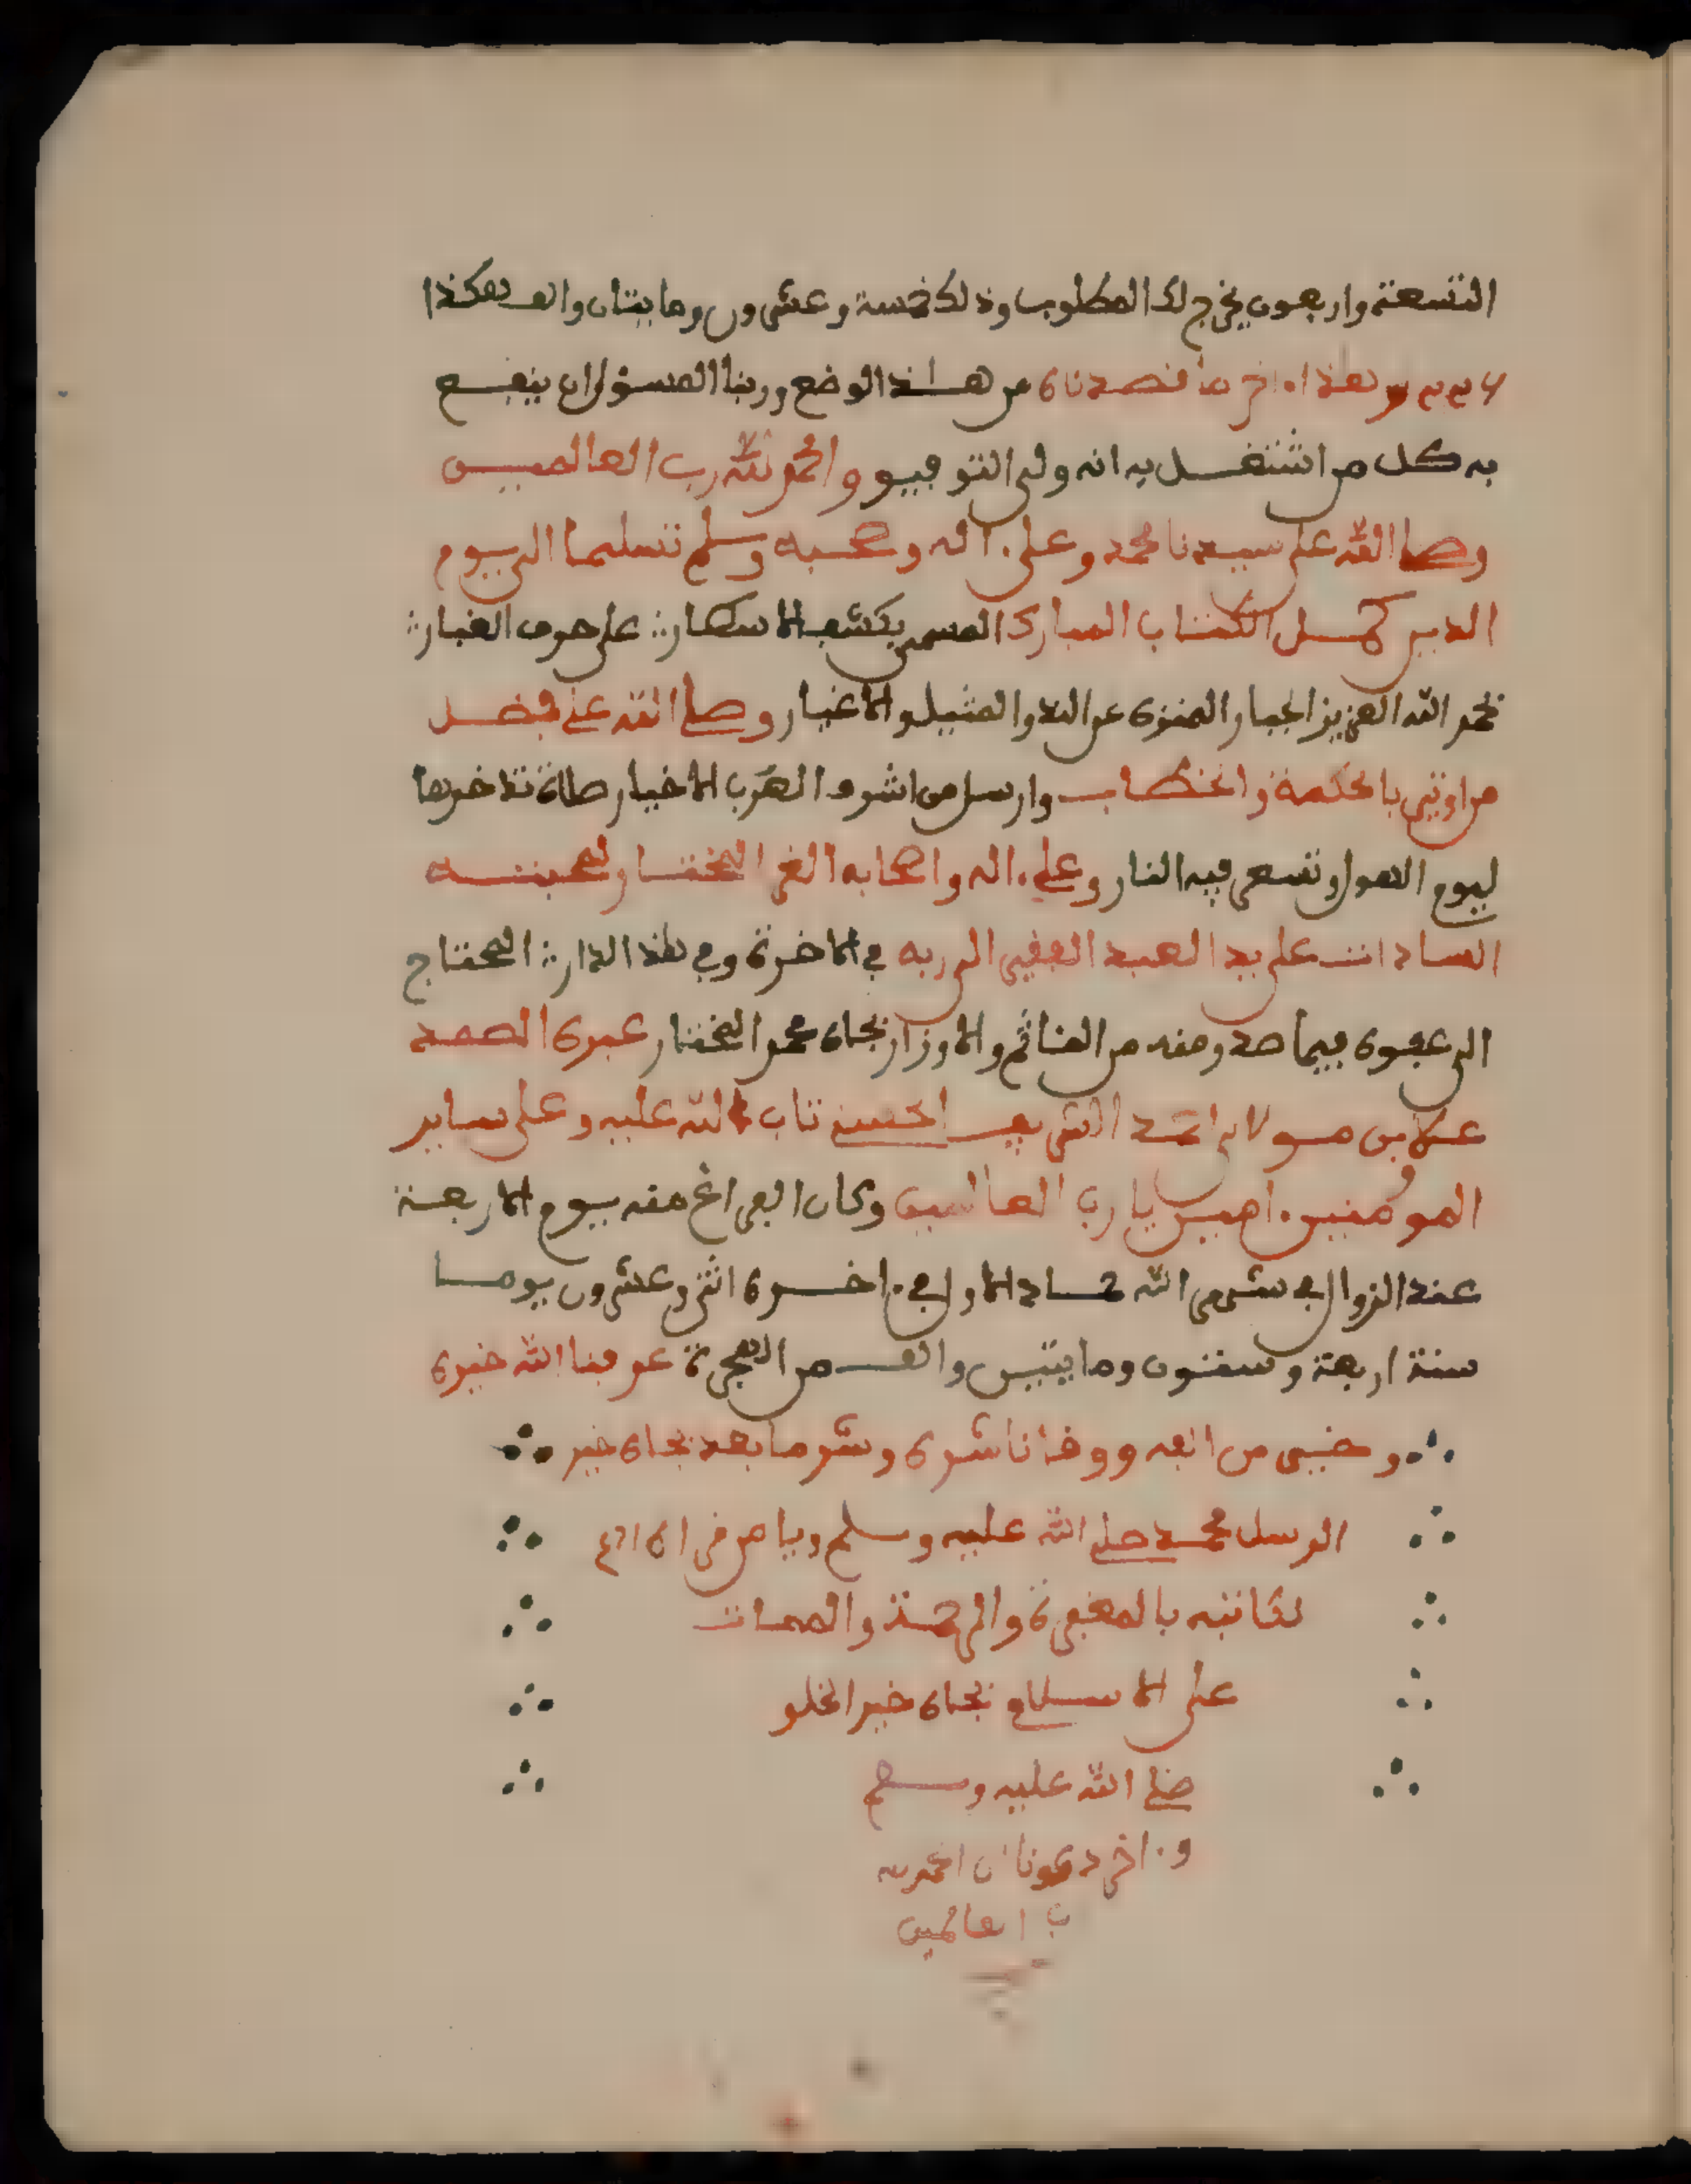 التسعة واربعون يخرج لك المطلوب وذلك خمسة وعشرون ومايتان والف هكذا
وهذا اخر ما قصدناه من هذا الوضع وربنا المسؤل ان ينفع
به كل من اشتغل به انه ولي التوفيق والحمد لله رب العالمين
وصلى الله على سيدنا محمد وعلى اله وصحبه وسلم تسليما الى يوم
الدين كمل الكتاب المبارك المسمى بكشف الاسطار على حروف الغبار
نحمد الله العزيز الجبار المنزه عن الند والمثيل والاغيار وصلى الله على افضل
من اوتي بالحكمة والخطاب وارسل من اشرف العرب الاخيار صلاة تدخرها
ليوم الهول وتسعى فيه النار وعلى اله واصحابه الغر المختار لمحبته
السادات على يد العبد الفقير الى ربه في الاخرة وفي هذه الدار المحتاج
الى عفوه فيما صدر منه من المئاثم والاوزار بجاه محمد المختار عبده الصمد
علا بن مولاي احمد الشريف الحسني تاب الله عليه وعلى ساير
المومنين امين يا رب العالمين وكان الفراغ منه يوم الاربعة
عند الزوال في شهر الله جماد الاول في اخره اثنى وعشرون يوما
سنة اربعة وستون ومايتين والف من الهجرة عرفنا الله خيره
وخير من الفه ووقانا شره وشر ما بعده بجاه خير
الرسل محمد صلى الله عليه وسلم ويا من قراه ادع
لكاتبه بالمغفرة والرحمة والممات
على الاسلام بجاه خير الخلق
صلى الله عليه وسلم
و اخر دعونا ان الحمد لله
رب العالمين